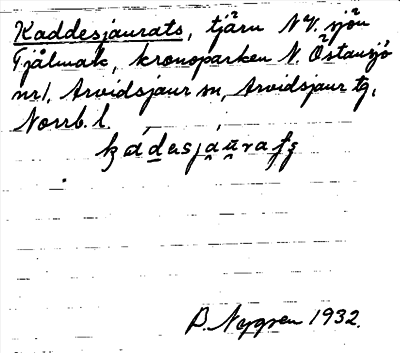 Kaddesjaurats, tjärn NV. sjön
Tjålmak, kronoparken N. Östansjö
nr 1, Arvidsjaur sn, Arvidsjaur tg,
Norrb. l.
B. Nygren 1932.